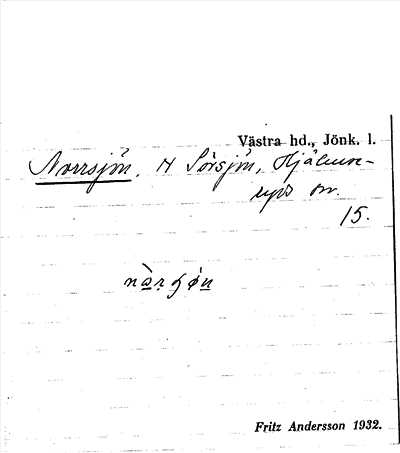 Västra hd., Jönk. l.
Norrsjön, H Sörsjön, Hjälmse-
ryds sn.
15.
Fritz Andersson 1932.